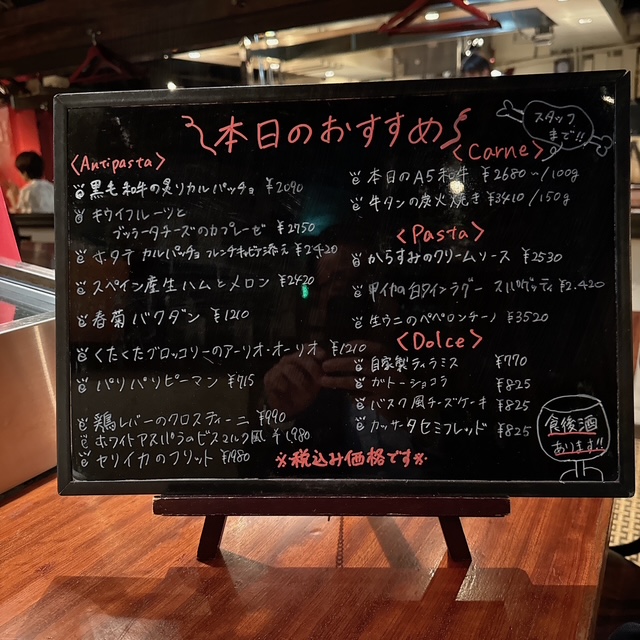 本日のおすすめ
<Antipasta>
黒毛和牛の炙りカルパッチョ ¥2090
キウイフルーツと
ブッラータチーズのカプレーゼ ¥2750
ホタテ カルパッチョ フレンチキャビア添え ¥2420
スペイン産生ハムとメロン ¥2420
春菊バクダン ¥1210
くたくたブロッコリーのアーリオ・オーリオ ¥1210
パリパリピーマン ¥715
鶏レバーのクロスティーニ ¥990
ホワイトアスパラのビスマルク風 ¥1980
セリイカのフリット ¥1980
<Carne>
本日のA5和牛 ¥2680〜/100g
牛タンの炭火焼き ¥3410/150g
<Pasta>
からすみのクリームソース ¥2530
甲イカの白ワインラグー スパゲッティ ¥2.420
生ウニのペペロンチーノ ¥3520
<Dolce>
自家製ティラミス ¥770
ガトーショコラ ¥825
バスク風チーズケーキ ¥825
カッサータセミフレッド ¥825
※税込み価格です※
スタッフ
まで!!
食後酒
あります!!